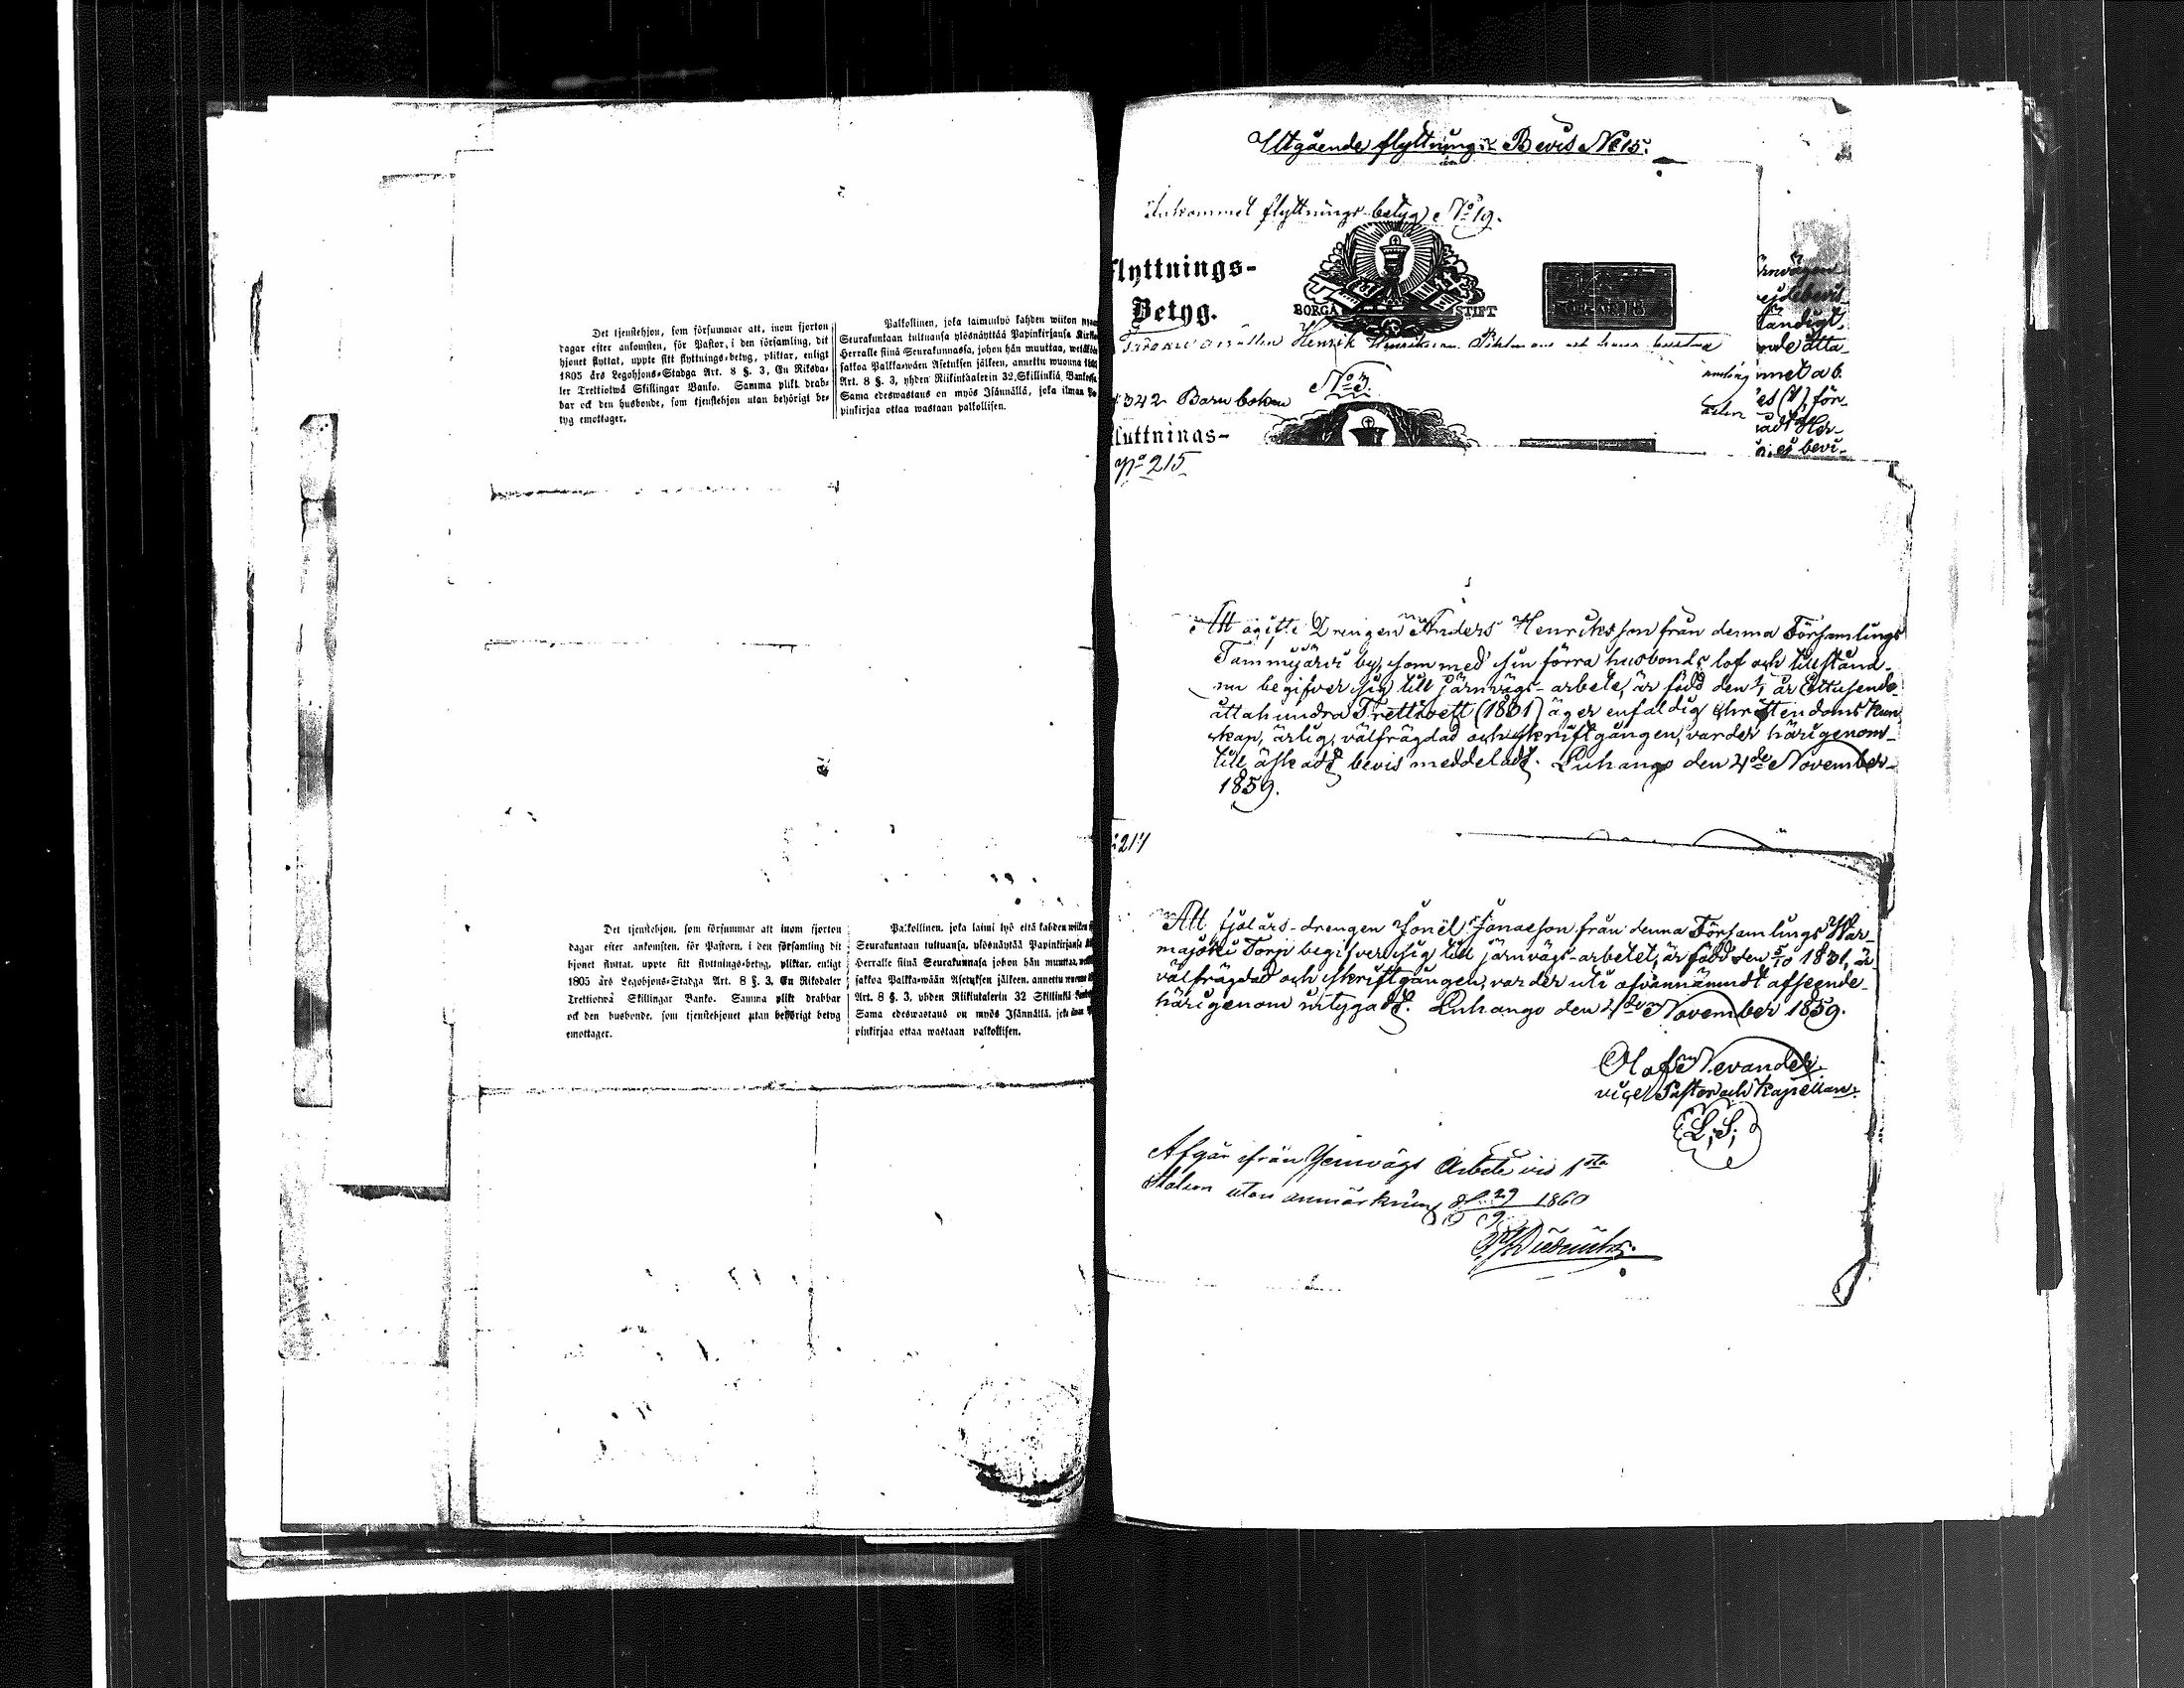 Det tjenstehjon, som försummar att, inom fjorton
dagar efter ankomsten, för Pastor, i den församling, dit
hjonet flyttat, uppte sitt flyttnings-betyg, pliktar, enligt
1805 års Legohjons-Stadga Art. 8 §. 3, En Riksda-
ler Trettiotwå Skillingar Banko. Samma plikt drab-
bar ock den husbonde, som tjenstehjon utan behörigt be-
tyg emottager.
Palkollinen, joka laiminlyö kahden wiikon
Seurakuntaan tultuansa ylösnäyttää Papinkirjansa
Herralle siinä Seurakunnassa, johon hän muuttaa,
sakkoa Palkka-wäen Asetuksen jälkeen, annettu wuonna
Art. 8 §. 3, yhden Riikintaalerin 32 Skillinkiä
Sama edeswastaus on myös Isännällä, joka ilman
pinkirjaa ottaa wastaan palkollisen.
Det tjenstehjon, som försummar att inom fjorton
dagar efter ankomsten, för Pastorn, i den församling dit
hjonet flyttat, uppte sitt flyttnings-betyg, pliktar, enligt
1805 års Legohjons-Stadga Art. 8 §. 3, En Riksdaler
Trettiotwå Skillingar Banko. Samma plikt drabbar
ock den husbonde, som tjenstehjonet utan behörigt betyg
emottager.
Palkollinen, joka laimi lyö että kahden wiikon
Seurakuntaan tultuansa, ylösnäytää Papinkirjansa
Herralle siinä Seurakunnasa johon hän muuttaa,
sakkoa Palkka-wään Asetyksen jälkeen, annettu
Art. 8 §. 3, yhden Riikintalerin 32 Skillinkiä
Sama edeswastaus on myös Isännällä, joka
pinkirjaa ottaa wastaan palkollisen.
Utgående flyttnings Bevis No 15.
Inkommet flyttnings-betyg No 19.
flyttnings-
Betyg.
BORGÅ STIFT
Henrik
No 3.
342 Barnboken
No 215
Att ogifte Drengen Anders Henriksson från denna Församlings
Tammijärvi by, som med sin förra husbonds lof och tillstånd
nu begifver sig till järnvägs-arbete, är född den 1/1 år Ettusende
åttahundra Trettioett (1831) äger enfaldig christendoms kun
skap, ärlig, välfrägdad och skriftgången, varder härigenom
till äskadt bevis meddeladt. Luhango den 4de November
1859.
217
Att fjolårs-drengen Jonël Jonasson från denna Församlings
majoki Torp begifver sig till järnvägs-arbetet, är född den 5/10 1831, är
välfrägdad och skriftgången, varder uti ofvannämndt afseende
härigenom intygadt. Luhango den 4de November 1859.
Olof Nevander
vice Pastor och Kapellan.
L.S.
Afgår från Jernvägs Arbete vid 1sta
Station utan anmärkning 1860